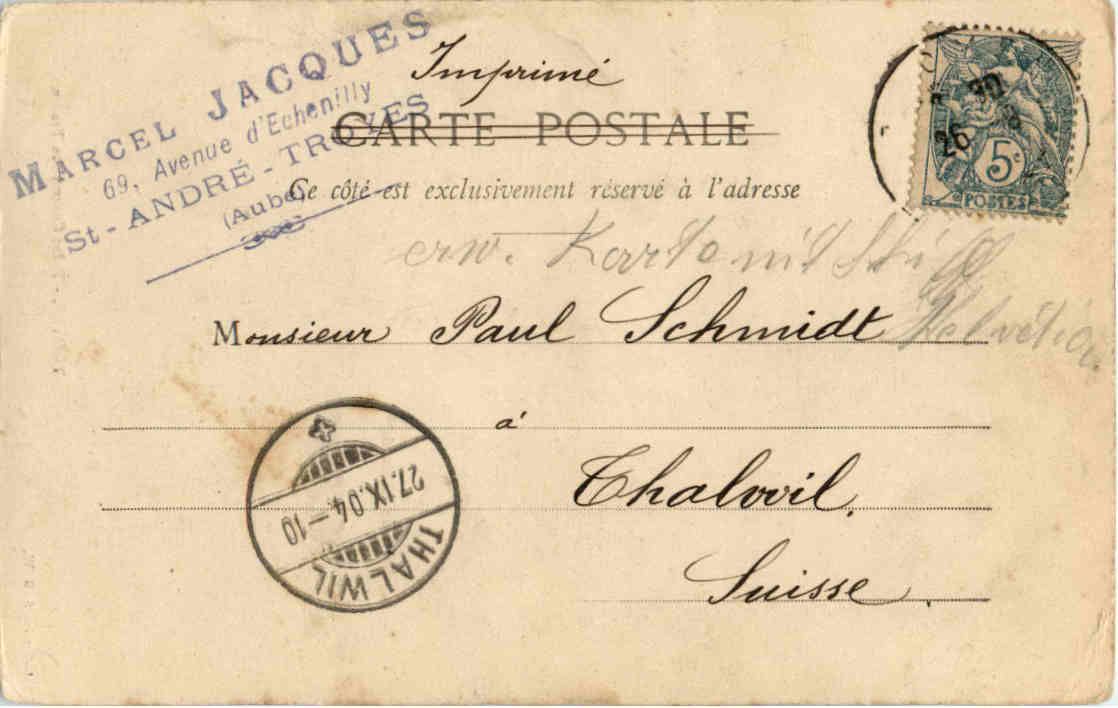 MARCEL JACQUES
69, Avenue d'Echenilly
St-ANDRÉ-TROYES
(Aube)
Imprimé
CARTE POSTALE
Ce côté est exclusivement réservé à l'adresse
30
26
5c
POSTES
erw. Karte mit
Monsieur Paul Schmidt
à
Thalwil.
Suisse.
27.IX.04.-10
THALWIL